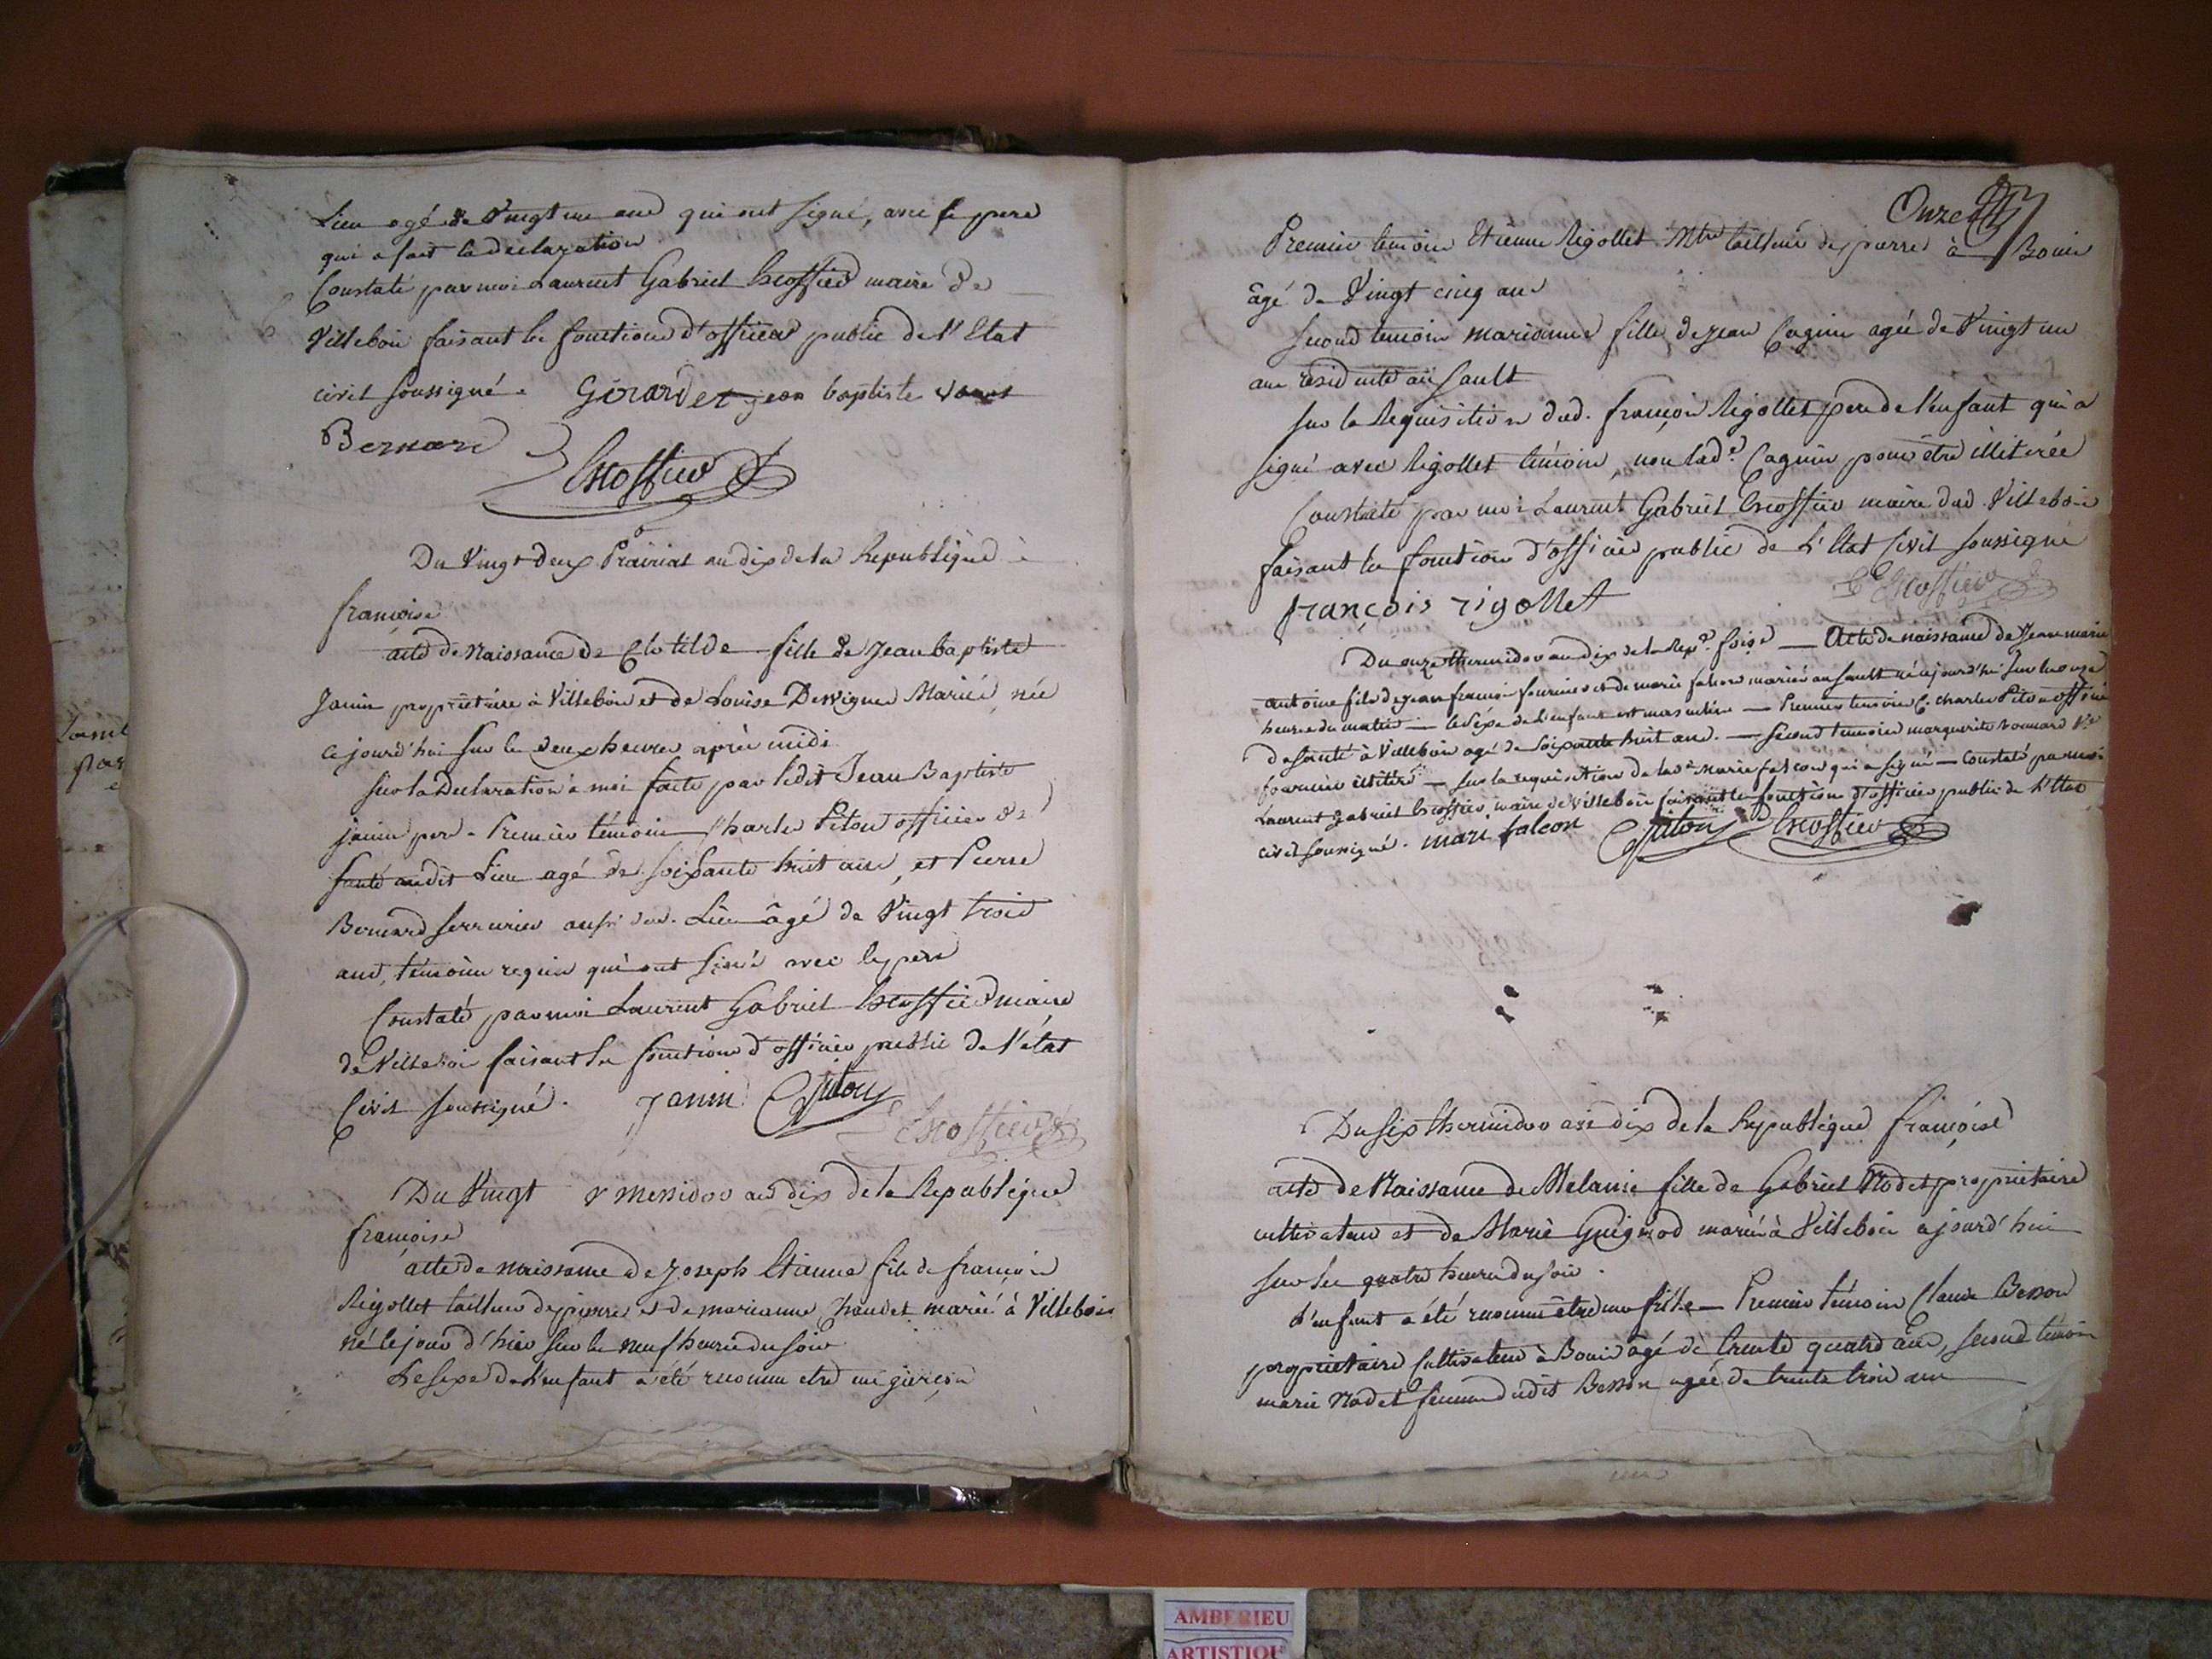 Lieu agé de Vingt un ans qui ont signé, avec le pere
qui a fait la declaration
Constaté par moi Laurent Gabriel Escoffier maire de
Villebois faisant les fonctions d'officier public de l'Etat
civil soussigné. Girardet jean baptiste
Bernard
Escoffier
Du Vingt deux Prairial an dix de la Republique
françoise
acte de Naissance de Clotilde fille de Jean baptiste
Janin propriétaire à Villebois et de Louise Dervigne Mariés, née
ce jourd'hui sur les deux heures après midi
sur la Declaration à moi faite par ledit Jean Baptiste
janin pere. Premier témoin Charles Piton officier de
santé audit Lieu agé de soixante huit ans, et Pierre
Bernard serrurier aussi dud. Lieu âgé de Vingt trois
ans, témoins requis qui ont signé avec le pere
Constaté par moi Laurent Gabriel Escoffier maire
de Villebois faisant les fonctions d'officier public de l'état
Civil soussigné. Janin CPiton
Escoffier
Du Vingt messidor an dix de la Republique
françoise
acte de naissance de Joseph Etienne fils de françois
Rigollet tailleur de pierre et de marianne Chaudet mariés à Villebois
né le jour d'hier sur les neuf heures du soir
Le sexe de l'enfant a été reconnu etre un garçon
Onze
Premier temoin Etienne Rigollet Mtre tailleur de pierres à Bouis
âgé de Vingt cinq ans
second temoin marianne fille de jean Cagnin agée de Vingt un
ans residente au Sault
sur la Requisition dud. françois Rigollet pere de l'enfant qui a
signé avec Rigollet témoin, non lade. Cagnin pour être illiterée
Constaté par moi Laurent Gabriel Escoffier maire dud. Villebois
faisant les fonctions d'officier public de L'Etat Civil soussigné
françois rigollet Escoffier
Du onze thermidor an dix de la Repe. foise — Acte de naissance de Jean marie
antoine fils de jean françois fournier et de marie falcon mariés au Sault né cejourd'hui sur les onze
heures du matin — le Sexe de l'enfant est masculin — Premier temoin C. charles Piton officier
de santé à Villebois agé de soixante huit ans. — second temoin marguerite bonnard Ve
fournier illitéré — sur la requisition de lade. Marie falcon qui a signé — Constaté par moi
Laurent Gabriel Escoffier maire de Villebois faisant les fonctions d'officier public de l'Etat
civil soussigné. mari falcon CPiton Escoffier
Du six thermidor an dix de la Republique françoise
acte de Naissance de Melanie fille de Gabriel Nodet propriétaire
cultivateur et de Marie Guignod mariés à Villebois cejourd'hui
sur les quatre heures du soir.
L'enfant a été reconnu être une fille — Premier témoin Claude Besson
propriétaire Cultivateur à Bouis âgé de trente quatre ans, second témoin
marie Nodet femme dudit Besson agée de trente trois ans
AMBERIEU
ARTISTIQU